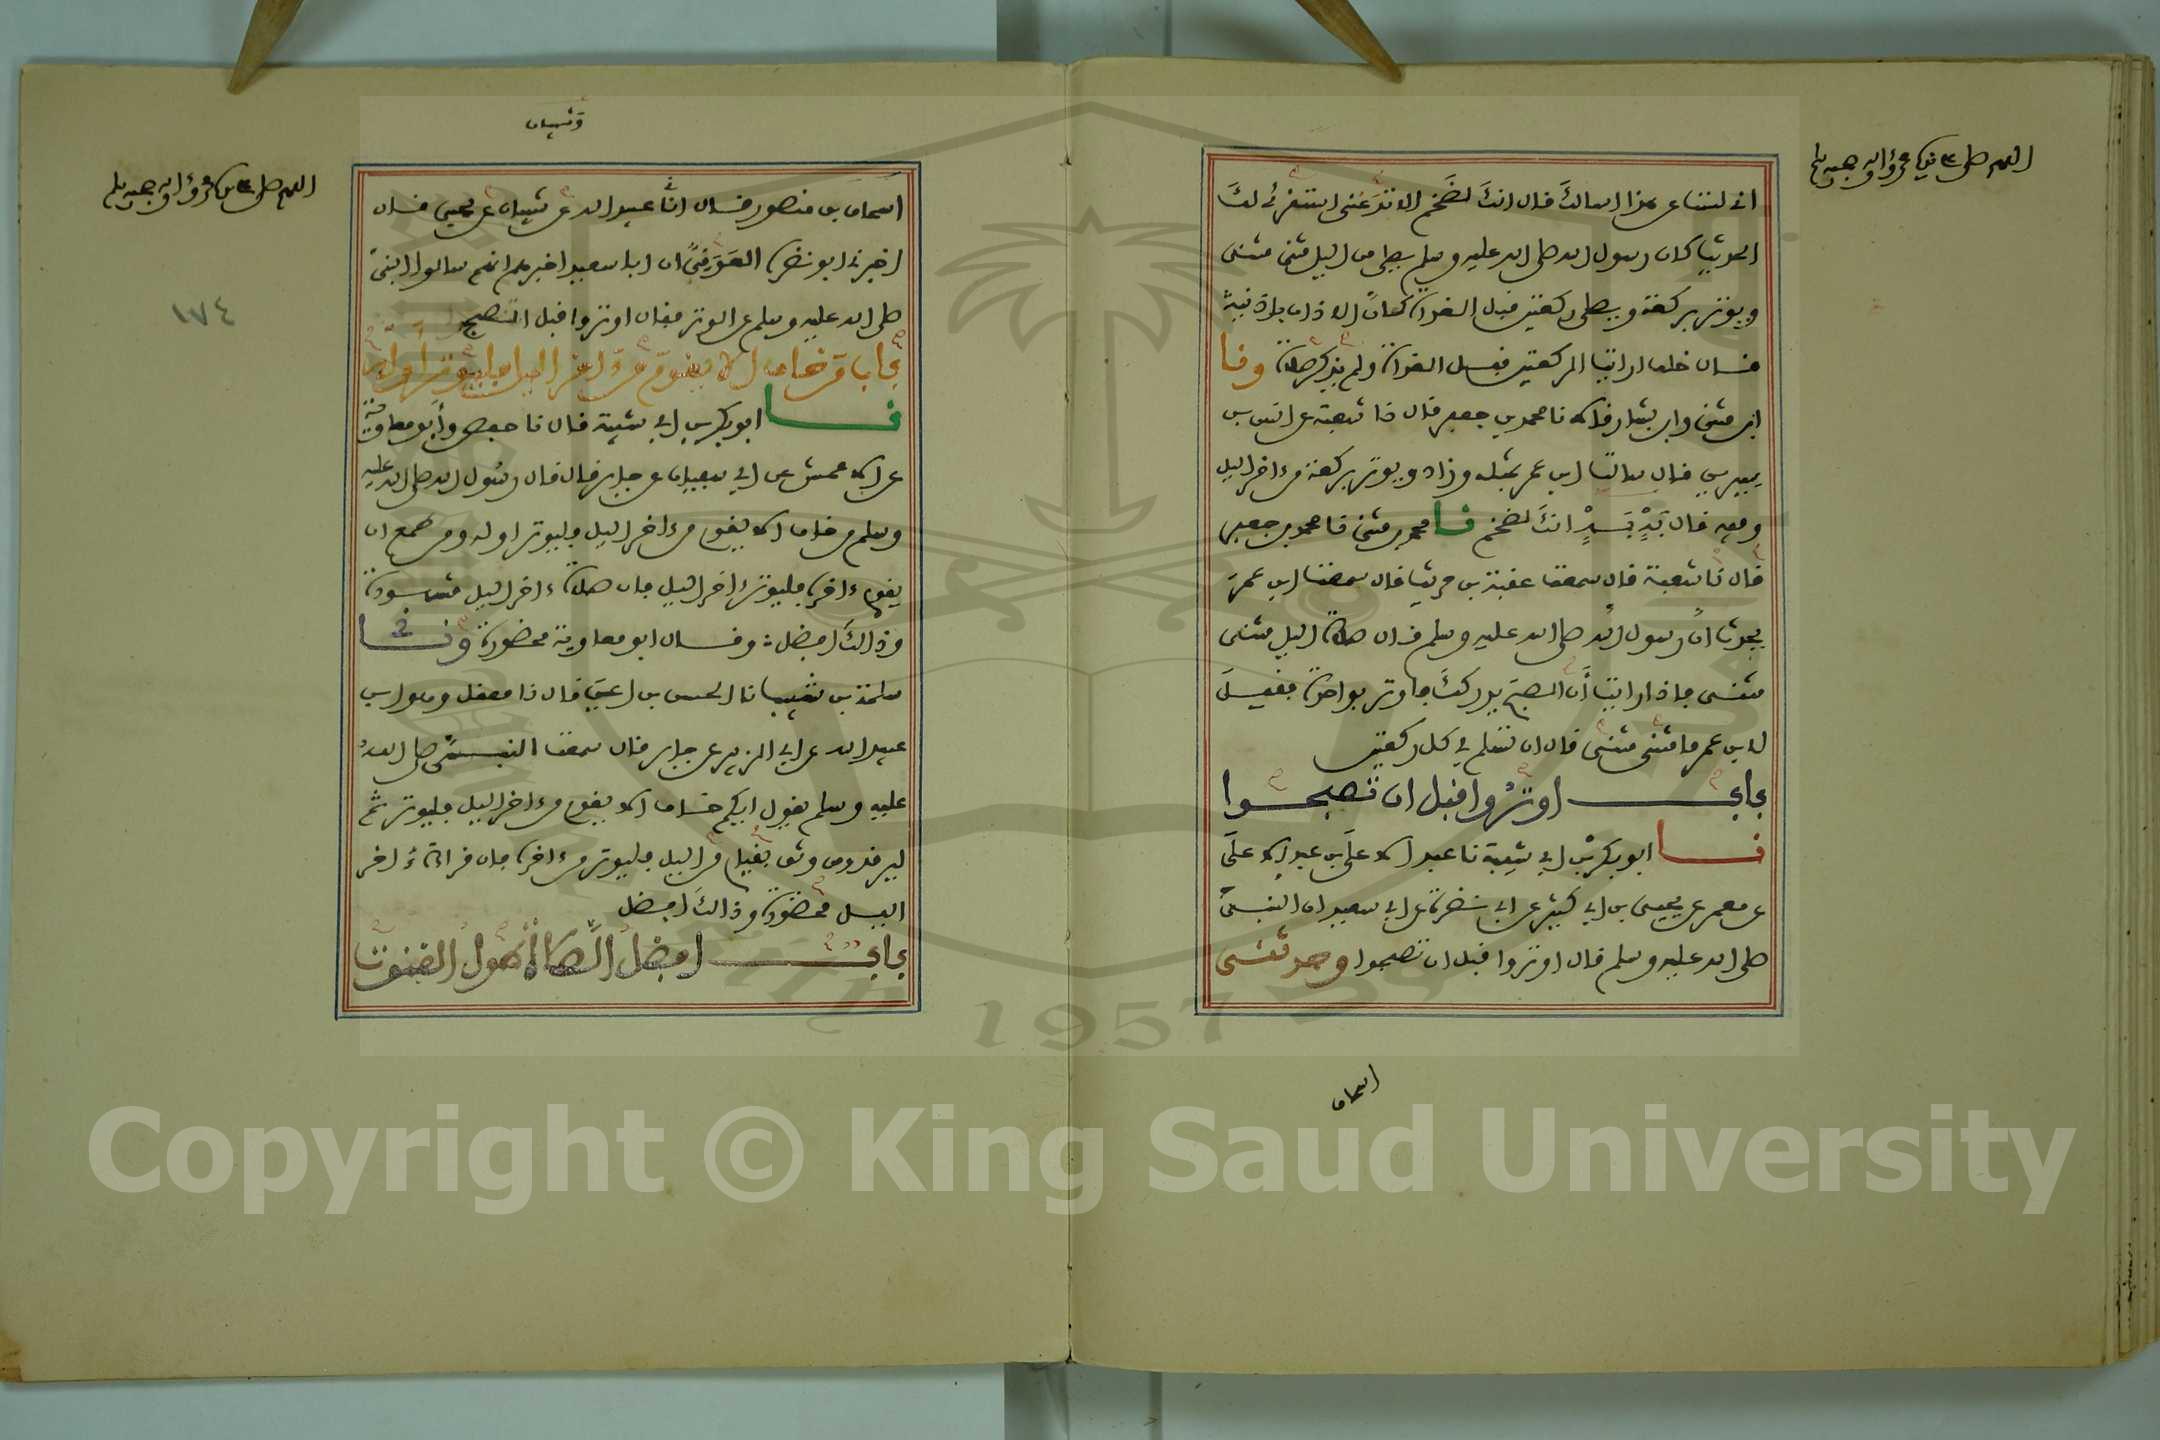 اللهم صل على سيدنا محمد وءاله وصحبه وسلم
اني لست عن هذا اسالك قال انك لضخم الا تدعني استقرئ لك
الحديث كان رسول الله صلى الله عليه وسلم يصلي من اليل مثنى مثنى
ويوتر بركعة ويصلي ركعتين قبل الغداة كان الاذان باذنيه
قال خلف ارايت الركعتين قبل الغداة ولم يذكر صلاة ونا
ابن مثنى وابن بشار قالا نا محمد بن جعفر قال نا شعبة عن انس بن
سيرين قال سالت ابن عمر بمثله وزاد ويوتر بركعة من ءاخر اليل
وفيه قال بَهْ بَهْ انك لضخم نا محمد بن مثنى نا محمد بن جعفر
قال نا شعبة قال سمعت عقبة بن حريث قال سمعت ابن عمر
يحدث ان رسول الله صلى الله عليه وسلم قال صلاة اليل مثنى
مثنى فاذا رايت أن الصبح يدركك فاوتر بواحدة فقيل
لابن عمر ما مثنى مثنى قال ان تسلم في كل ركعتين
باب اوتروا قبل ان تصبحوا
نا ابو بكر بن ابي شيبة نا عبد الاعلى بن عبد الاعلى
عن معمر عن يحيى بن ابي كثير عن ابي نضرة عن ابي سعيد ان النبي
صلى الله عليه وسلم قال اوتروا قبل ان تصبحوا وحدثني
اسحاق
اللهم صل على سيدنا محمد وءاله وصحبه وسلم
١٧٤
اسحاق بن منصور قال انا عبيد الله عن شيبان عن يحيى قال
اخبرني ابو نضرة العوقي ان ابا سعيد اخبرهم انهم سالوا النبي
صلى الله عليه وسلم عن الوتر فقال اوتروا قبل الصبح
باب من خاف الا يقوم من ءاخر اليل فليوتر أوله
نا ابو بكر بن ابي شيبة قال نا حفص وأبو معاوية
عن الاعمش عن ابي سفيان عن جابر قال قال رسول الله صلى الله عليه
وسلم من خاف الا يقوم من ءاخر اليل فليوتر اوله ومن طمع ان
يقوم ءاخره فليوتر ءاخر اليل فان صلاة ءاخر اليل مشهودة
وذالك افضل وقال ابو معاوية محضورة ونا
سلمة بن شبيب نا الحسن بن اعين قال نا معقل وهو ابن
عبيد الله عن ابي الزبير عن جابر قال سمعت النبي صلى الله
عليه وسلم يقول ايكم خاف الا يقوم من ءاخر اليل فليوتر ثم
ليرقد ومن وثق بقيام من اليل فليوتر من ءاخره فان قراءة ءاخر
اليل محضورة وذالك افضل
باب افضل الصلاة طول القنوت
Copyright © King Saud University
1957